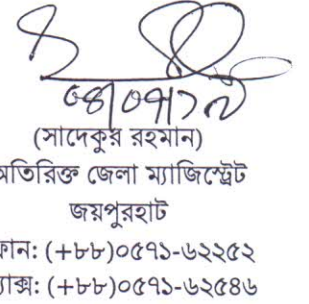 (সাদেকুর রহমান)
অতিরিক্ত জেলা ম্যাজিস্ট্রেট
জয়পুরহাট
ফোন: (+৮৮)০৫৭১-৬২২৫২
ফ্যাক্স: (+৮৮)০৫৭১-৬২৫৪৬